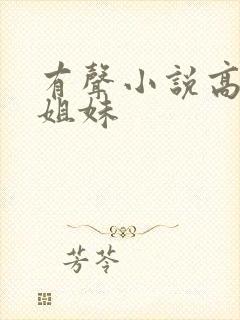 有聲小說高
姐妹
芳苓